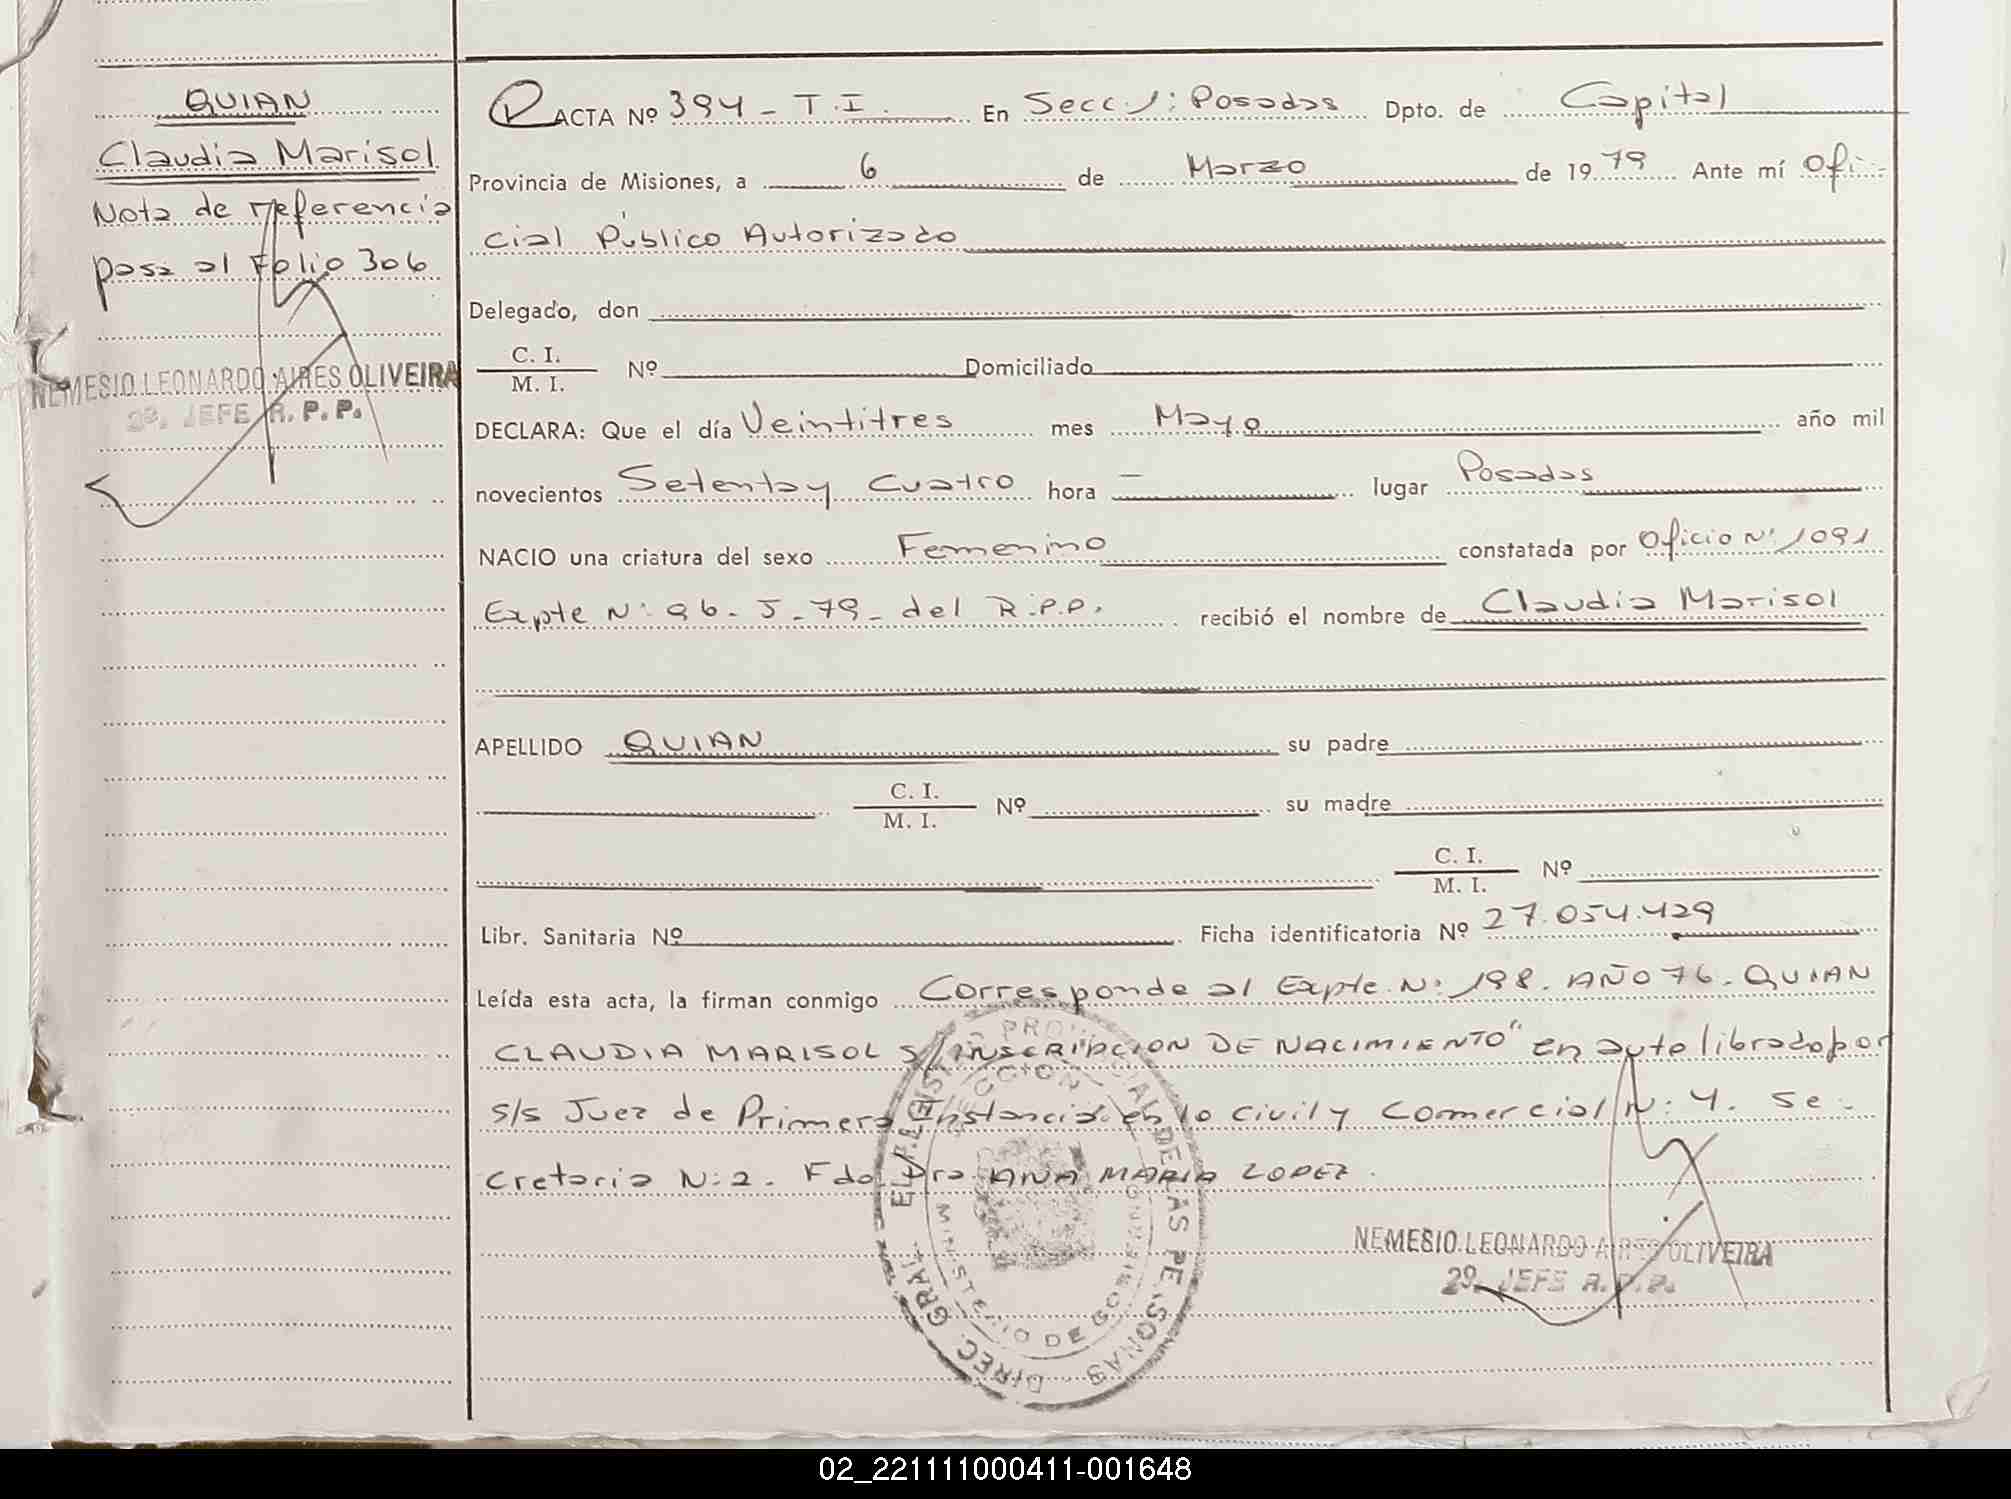 QUIAN
Claudia Marisol
Nota de referencia
pasa al Folio 306
NEMESIO LEONARDO AIRES OLIVEIRA
2º. JEFE R. P. P.
ACTA Nº 394 - T. I. En Secc. 1: Posadas Dpto. de Capital
Provincia de Misiones, a 6 de Marzo de 1979 Ante mí Ofi-
cial Público Autorizado
Delegado, don
C. I.
M. I.
Nº Domiciliado
DECLARA: Que el día Veintitres mes Mayo año mil
novecientos Setenta y Cuatro hora — lugar Posadas
NACIO una criatura del sexo Femenino constatada por Oficio Nº 1091
Expte Nº 96-J-79- del R.P.P. recibió el nombre de Claudia Marisol
APELLIDO QUIAN su padre
C. I.
M. I.
Nº su madre
C. I.
M. I.
Nº
Libr. Sanitaria Nº Ficha identificatoria Nº 27.054.429
Leída esta acta, la firman conmigo Corresponde al Expte. Nº 198. AÑO 76. QUIAN
CLAUDIA MARISOL S/INSCRIPCION DE NACIMIENTO" en auto librado por
s/s Juez de Primera Instancia en lo Civil y Comercial Nº 4. Se-
cretaria Nº 2. Fdo. Dra ANA MARIA LOPEZ.
NEMESIO LEONARDO AIRES OLIVEIRA
2º. JEFE R. P. P.
DIREC. GRAL. DEL REGISTRO PROVINCIAL DE LAS PERSONAS
MINISTERIO DE GOBIERNO
02_221111000411-001648